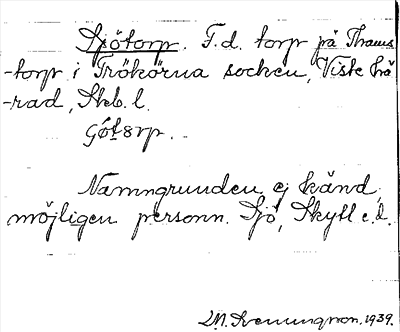 Sjötorp. F.d. torp på Thams
-torp i Trökörna socken, Viste hä
-rad, Skb. l.
Göt8rp.
Namngrunden ej känd,
möjligen personn. Sjö, Skytt e.d.
M. Svenungson. 1939.